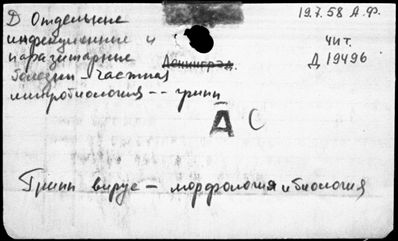 D Отдельные
инфекционные и
паразитарные
болезни - частная
микробиология -- грипп
Ленинград.
19.7.58 А.Ф.
Чит.
Д 19496
А С
Грипп вирус - морфология и биология